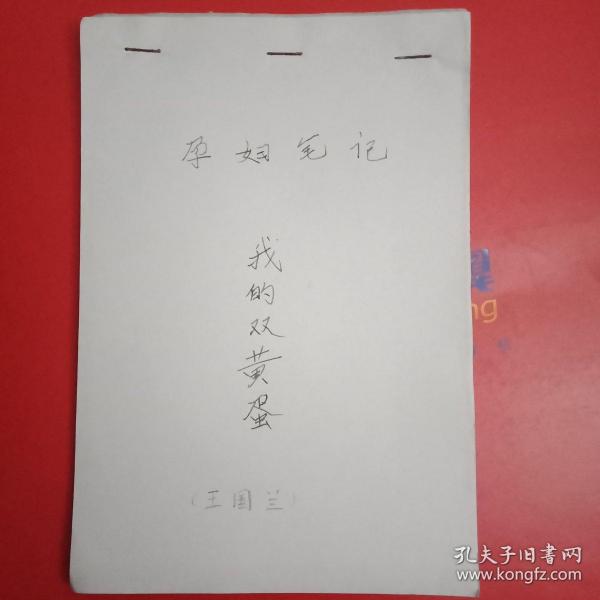 孕妇笔记
我的双黄蛋
(王国兰)
ng
孔夫子旧书网
www.kongfz.com